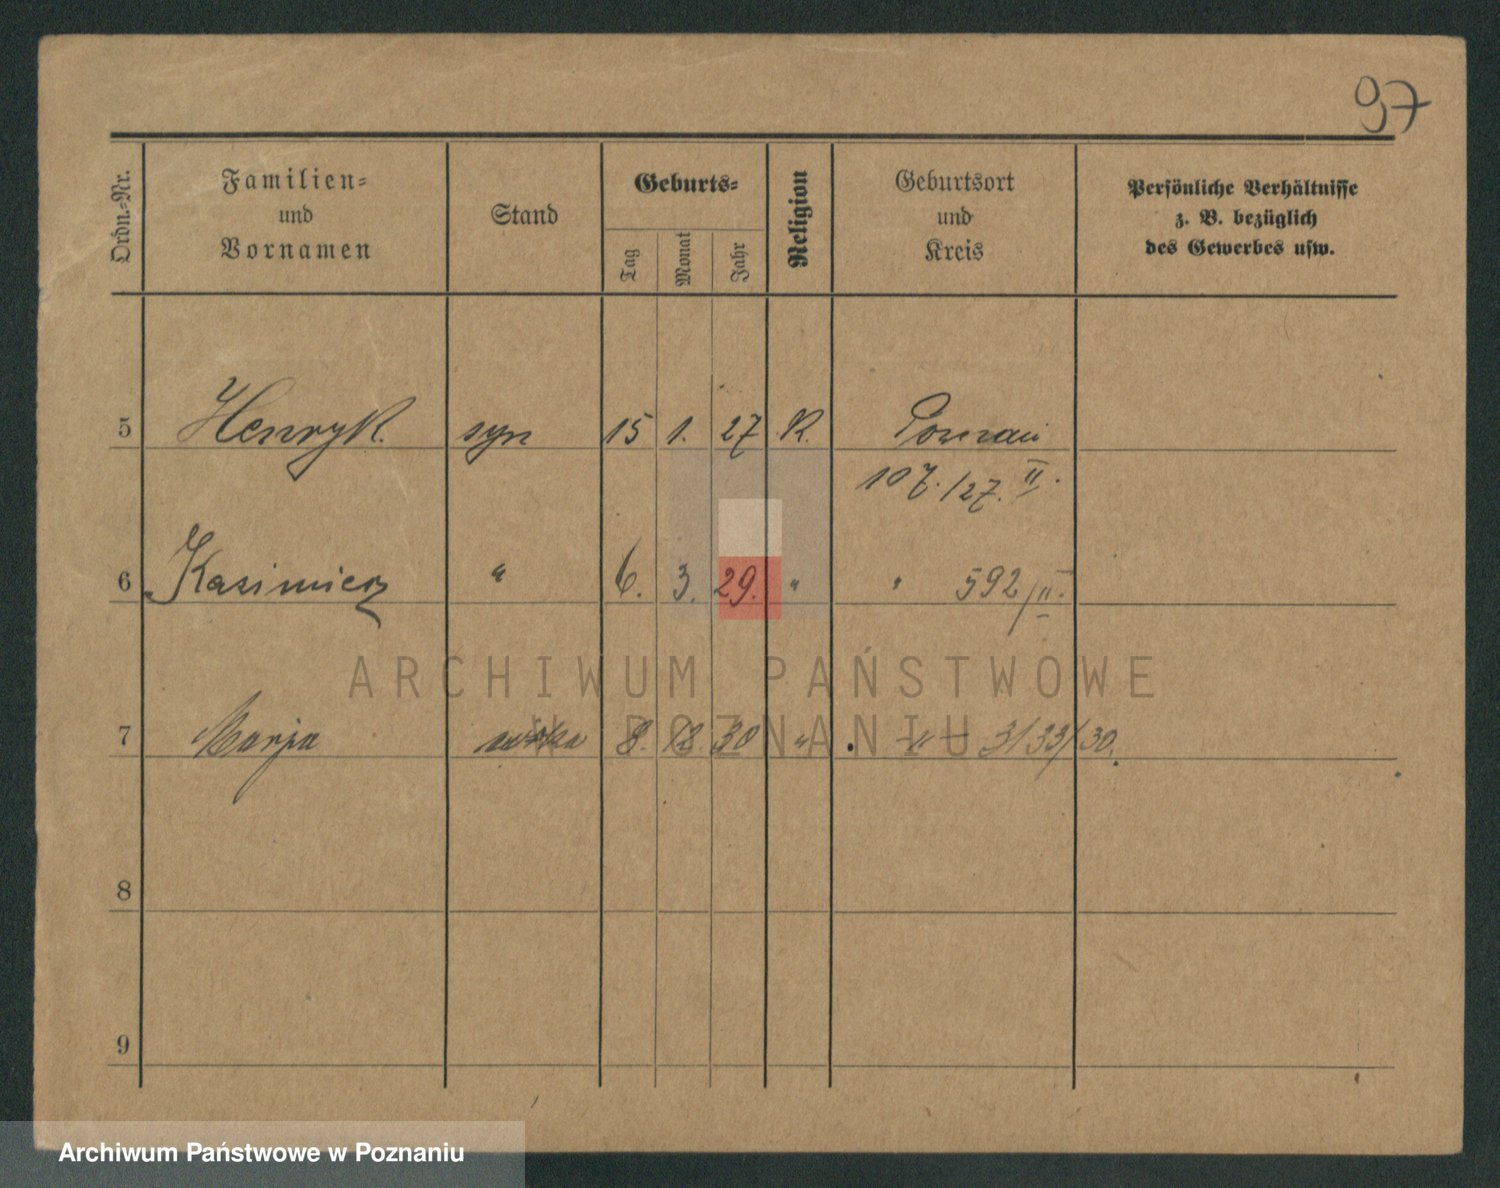 97
Ordn.-Nr.
Familien-
und
Vornamen
Stand
Geburts-
Tag
Monat
Jahr
Religion
Geburtsort
und
Kreis
Persönliche Verhältnisse
z. B. bezüglich
des Gewerbes usw.
5 Henryk. syn 15 1. 27 R. Poznań
107./27. II.
6 Kasimierz " 6. 3. 29. " " 592/II.
7 Marja 8. 12. 30 " " 3133/30.
8
9
ARCHIWUM PAŃSTWOWE
W POZNANIU
Archiwum Państwowe w Poznaniu